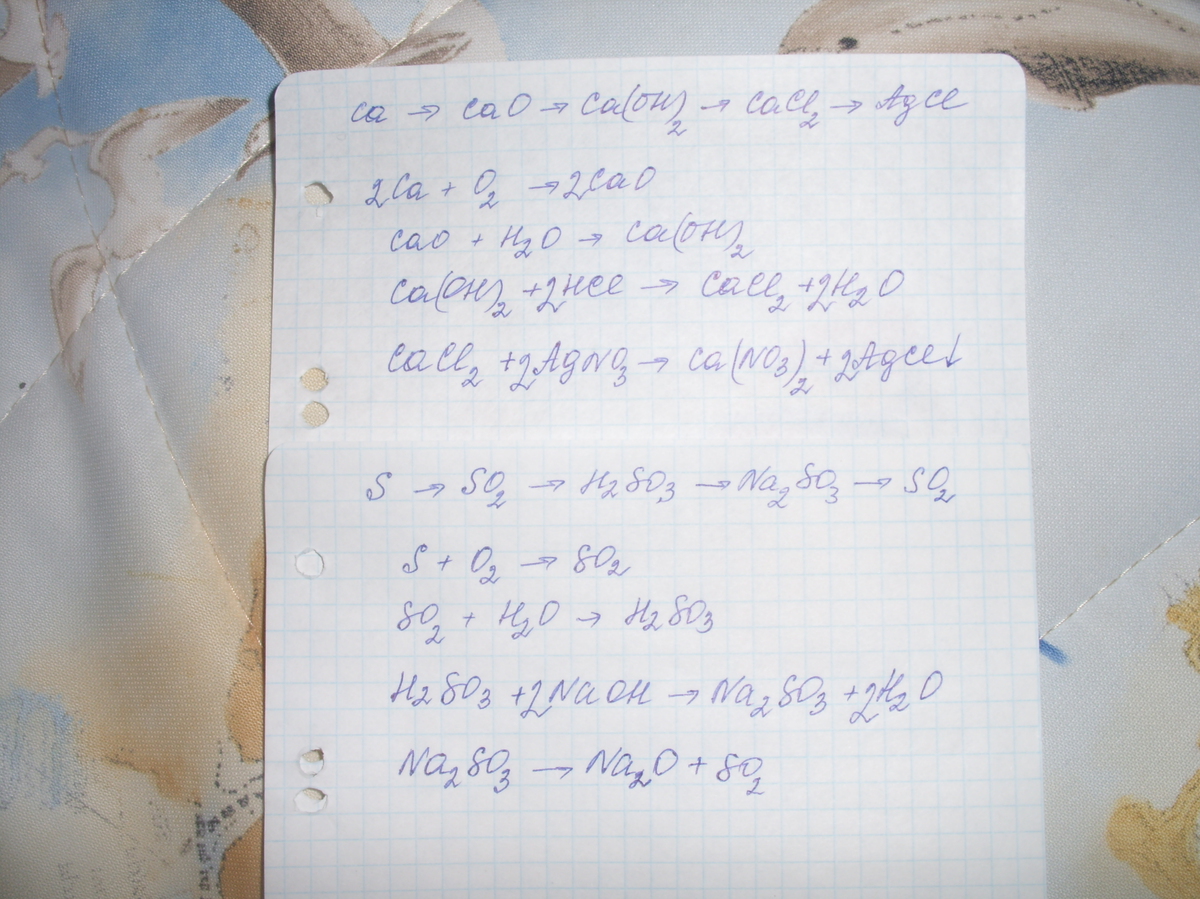 Ca → CaO → Ca(OH)₂ → CaCl₂ → AgCl
2Ca + O₂ → 2CaO
CaO + H₂O → Ca(OH)₂
Ca(OH)₂ + 2HCl → CaCl₂ + 2H₂O
CaCl₂ + 2AgNO₃ → Ca(NO₃)₂ + 2AgCl↓
S → SO₂ → H₂SO₃ → Na₂SO₃ → SO₂
S + O₂ → SO₂
SO₂ + H₂O → H₂SO₃
H₂SO₃ + 2NaOH → Na₂SO₃ + 2H₂O
Na₂SO₃ → Na₂O + SO₂